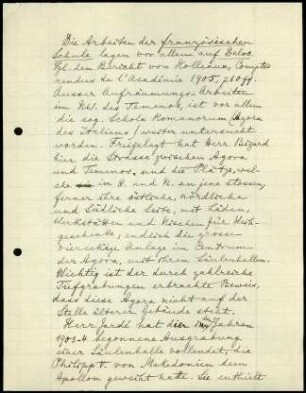 Die Arbeiten der französischen
Schule lagen vor allem auf Delos.
Vgl. den Bericht von Holleaux, Comptes
rendus de l'Académie 1905, 760 ff.
Ausser Aufräumungs-Arbeiten
im NW. des Temenos, ist vor allem
die sog. Schola Romanorum (Agora
des Italiens) weiter untersucht
worden. Freigelegt hat Herr Bizard
hier die Strasse zwischen Agora
und Temenos, und die Plätze, wel-
che im N. und N. an jene stossen,
ferner ihre östliche, nördliche
und südliche Seite, mit Läden,
Werkstätten und Nischen für Weih-
geschenke, endlich die grosse
viereckige Anlage im Centrum
der Agora, mit ihren Säulenhallen.
Wichtig ist der durch zahlreiche
Tiefgrabungen erbrachte Beweis,
dass diese Agora nicht auf der
Stelle älterer Gebäude steht.
Herr Jardé hat die in den Jahren
1903-4 begonnene Ausgrabung
einer Säulenhalle vollendet, die
Philipp V. von Makedonien dem
Apollon geweiht hatte. Sie enthielt